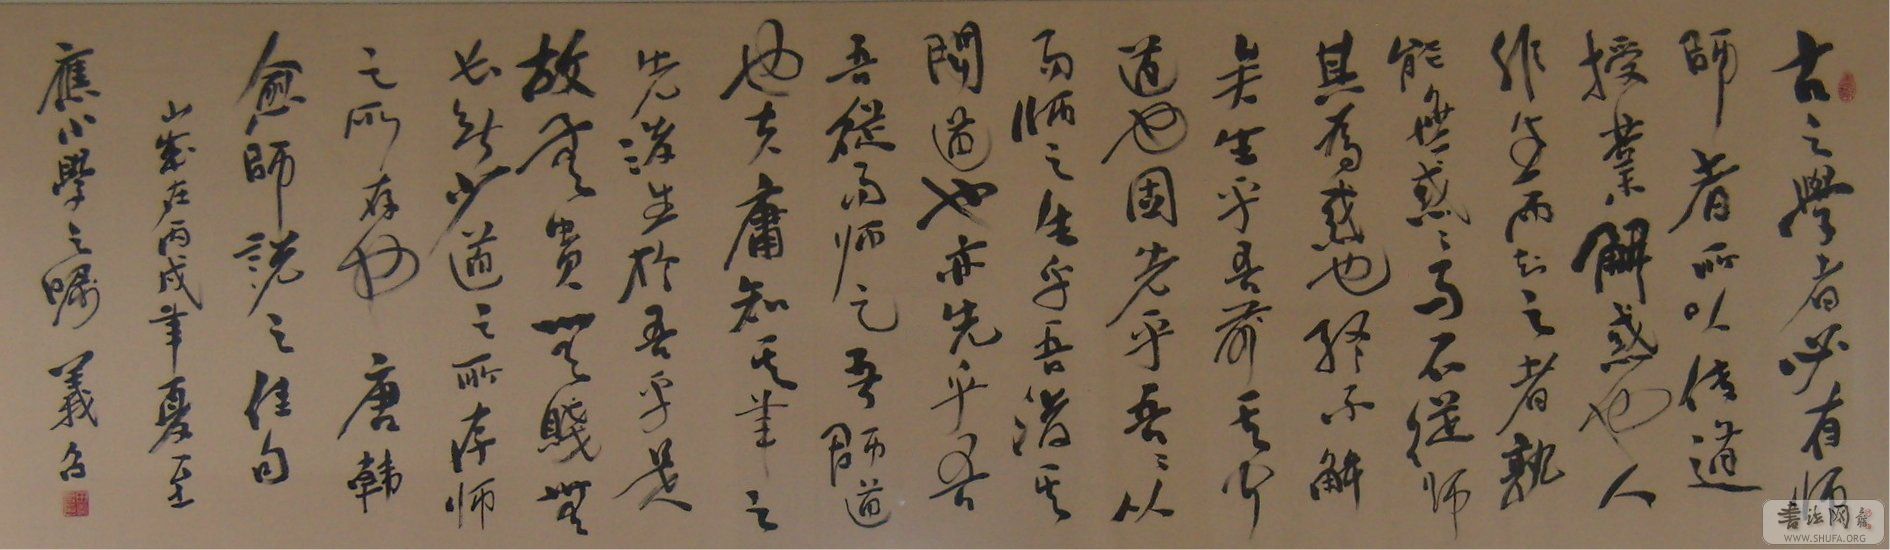 古之學者必有师
師者所以传道
授業解惑也人
非生而知之者孰
能無惑〻而不從师
其為惑也终不解
矣生乎吾前其闻
道也固先乎吾〻从
而师之生乎吾後其
聞道也亦先乎吾
吾從而师之吾師道
也夫庸知其年之
先後生於吾乎是
故無貴無賤無
長無少道之所存师
之所存也 唐韩
愈師説之佳句
歲在丙戌年夏至
應小學之囑 義
書法网
WWW.SHUFA.ORG